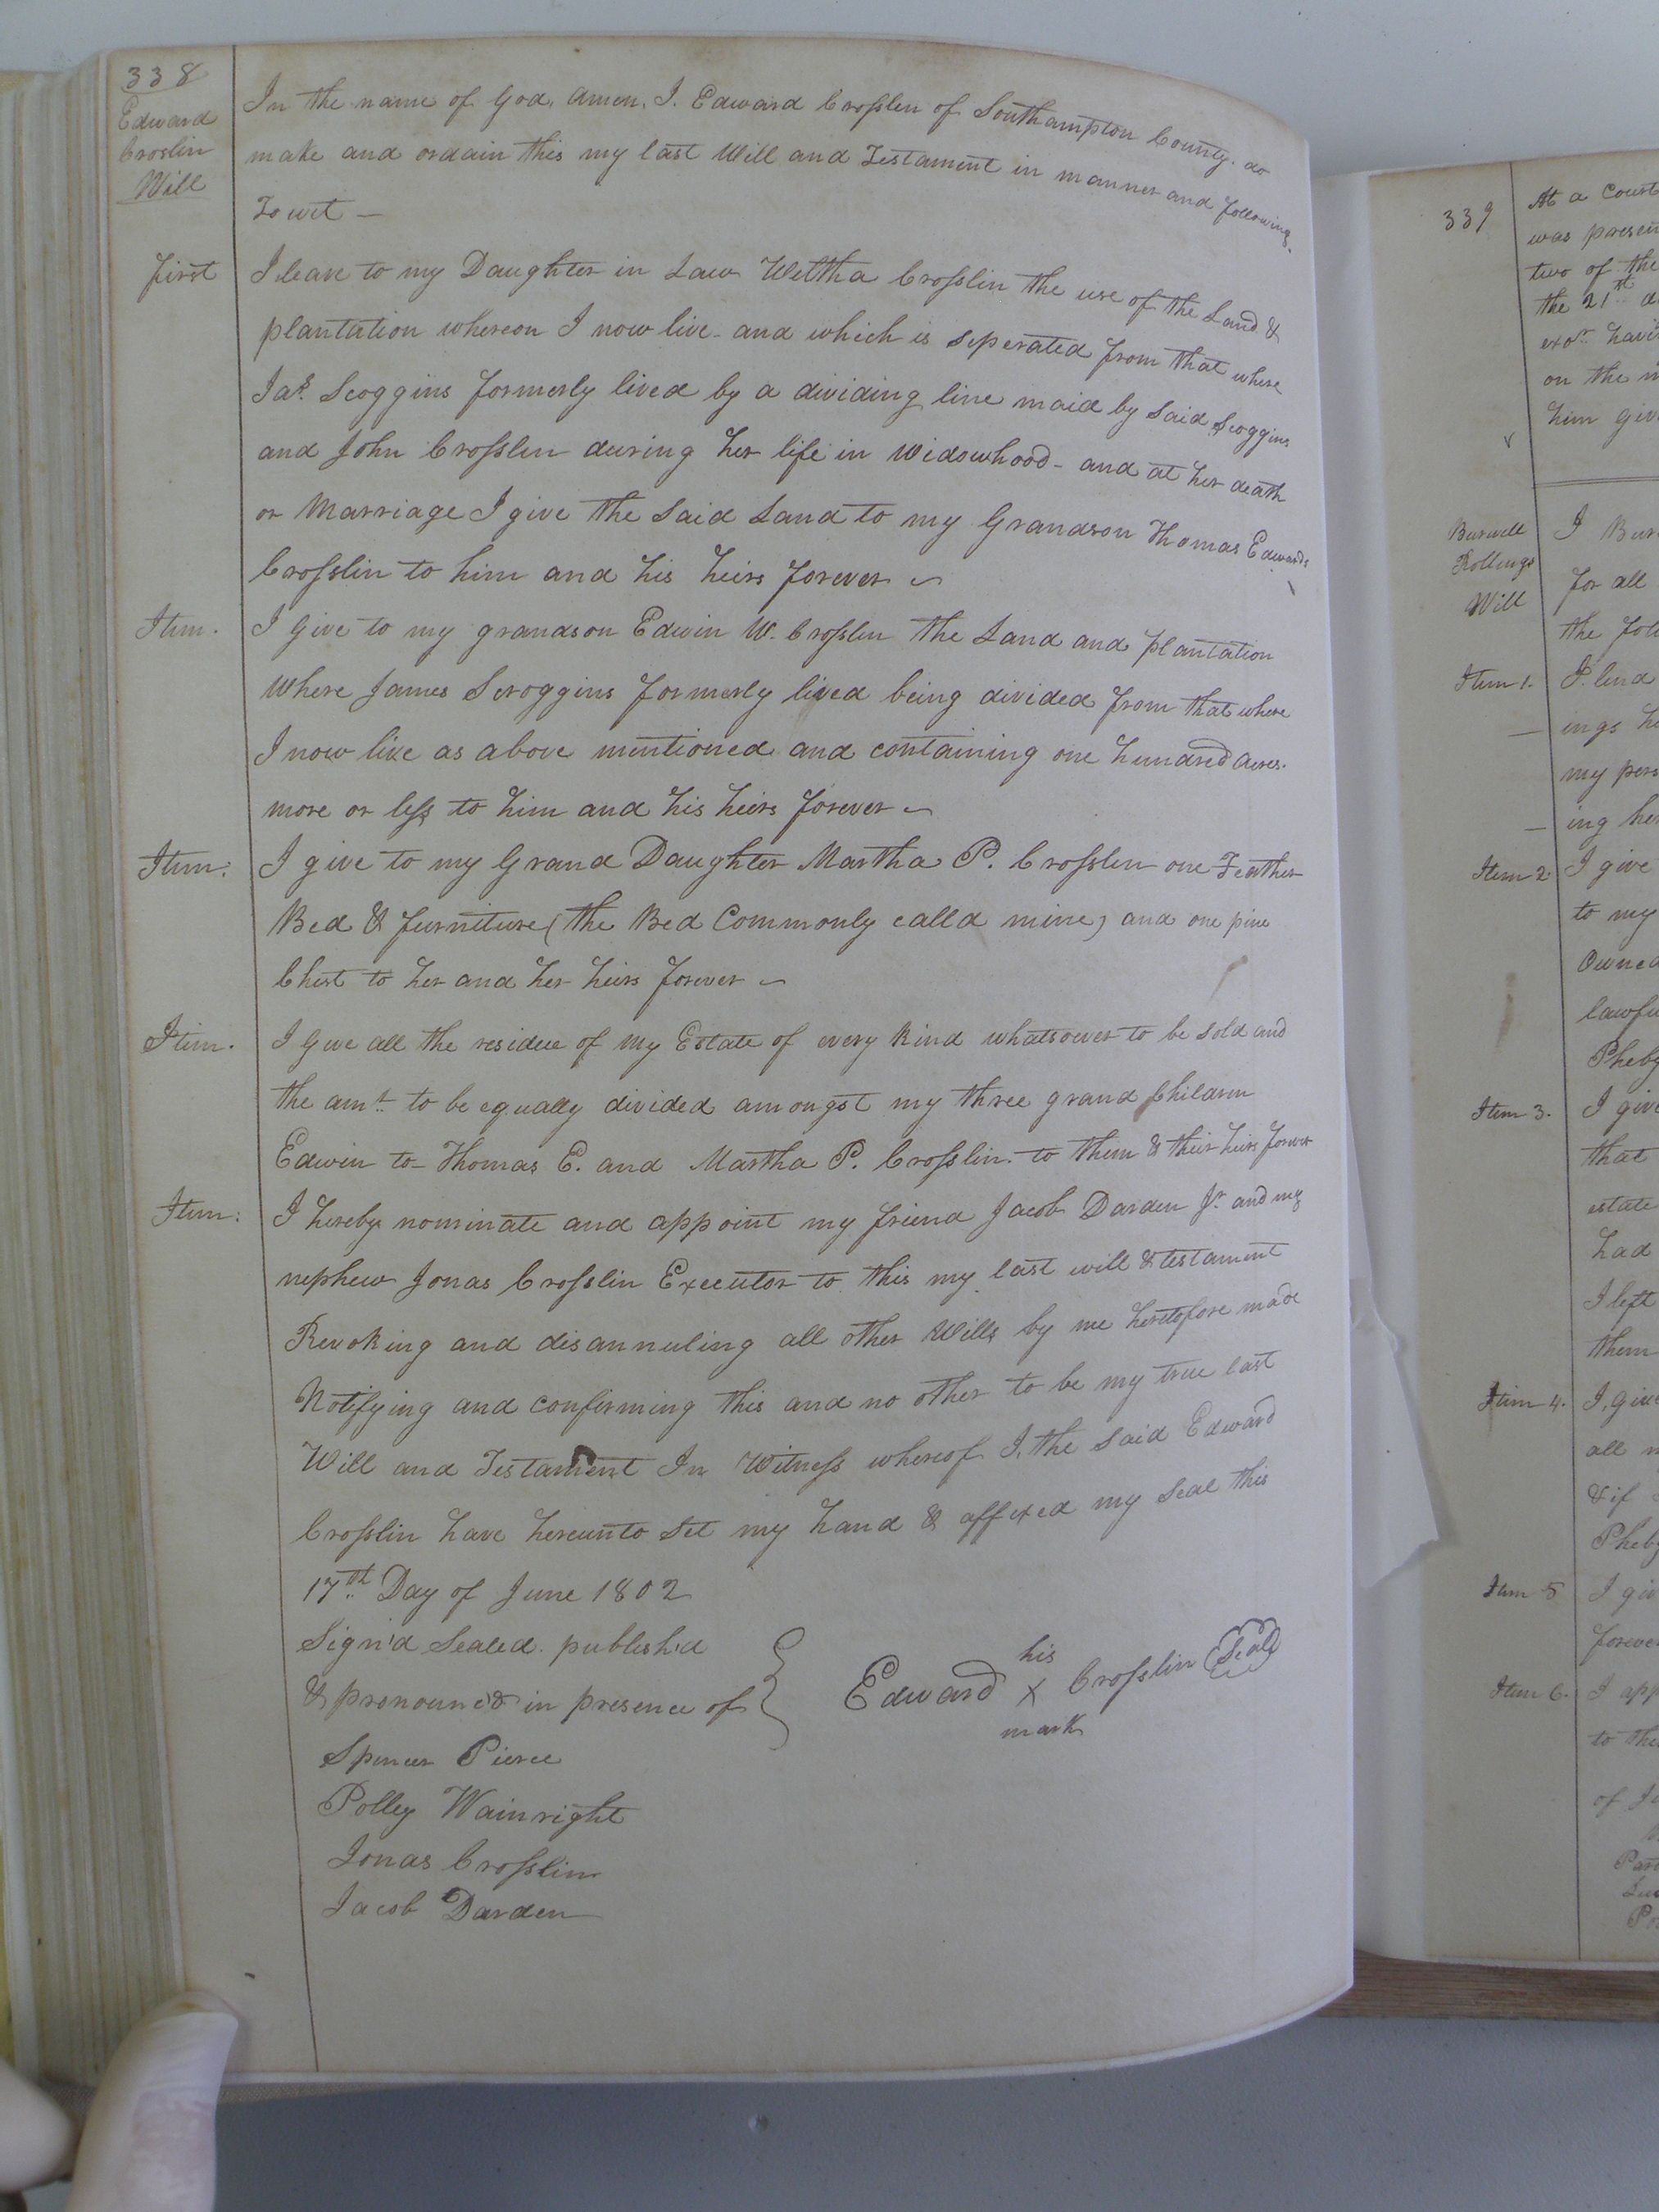 338
Edward
Croslin
Will
In the name of God, Amen, I. Edward Crosslin of Southampton County. do
make and ordain this my last Will and Testament in manner and following.
To wit —
first I leave to my Daughter in Law Weltha Crosslin the use of the Land &
plantation whereon I now live - and which is seperated from that where
Jas. Scoggins formerly lived by a dividing line maid by said Scoggins
and John Crosslin during her life in Widowhood - and at her death
or Marriage I give the said Land to my Grandson Thomas Edwards
Crosslin to him and his heirs forever ~
Item. I Give to my grandson Edwin W. Crosslin the Land and plantation
where James Scroggins formerly lived being divided from that where
I now live as above mentioned and containing one hundred acres.
more or less to him and his heirs forever ~
Item: I give to my Grand Daughter Martha P. Crosslin one Feather
Bed & furniture (the Bed Commonly calld mine) and one pine
Chest to her and her heirs forever ~
Item. I Give all the residue of my Estate of every kind whatsoever to be sold and
the amt. to be equally divided amongst my three grand Children
Edwin to Thomas E. and Martha P. Crosslin. to them & their heirs forever
Item: I hereby nominate and appoint my friend Jacob Darden Jr. and my
nephew Jonas Crosslin Executor to this my last will & testament
Revoking and disannuling all other Wills by me heretofore made
Notifying and confirming this and no other to be my true last
Will and Testament In Witness whereof I. the said Edward
Crosslin have hereunto set my hand & affixed my Seal this
17th. Day of June 1802
Sign'd Sealed. publish'd
& pronounc'd in presence of
his
Edward X Crosslin (Seal)
mark
Spencer Pierce
Polley Wainright
Jonas Crosslin
Jacob Darden
339
At a Court
was presen
two of the
the 21st d
exor. havi
on the m
him giv
Burwell
Rollings
Will
I Bur
for all
the foll
Item 1. I. lend
ings h
my pers
ing her
Item 2 I give
to my
Owned
lawfu
Pheby
Item 3. I give
that
estate
had
I left
them
Item 4. I. give
all m
& if
Pheby
Item 5 I giv
forever
Item 6. I app
to the
of Ju